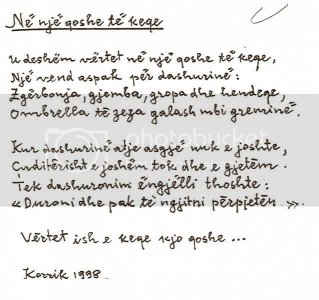 Në një qoshe të keqe
U deshëm vërtet në një qoshe të keqe,
Një vend aspak për dashurinë:
Zgërbonja, gjemba, gropa dhe hendeqe,
Ombrella të zeza galash mbi greminë.
Kur dashurinë atje asgjë nuk e joshte,
Çuditërisht e joshëm tok dhe e gjetëm.
Tek dashuronim ëngjëlli thoshte:
« Duroni dhe pak të ngjitni përpjetën ».
Vërtet ish e keqe kjo qoshe ...
Korrik 1998
photobucket